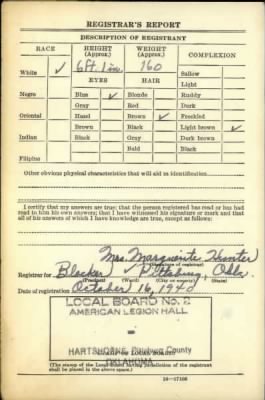 REGISTRAR'S REPORT
DESCRIPTION OF REGISTRANT
RACE HEIGHT (Approx.) WEIGHT (Approx.) COMPLEXION
White ✓ 6 ft. 1 in. 160 Sallow
EYES HAIR Light
Negro Blue ✓ Blonde Ruddy
Gray Red Dark
Oriental Hazel Brown ✓ Freckled
Brown Black Light brown ✓
Indian Black Gray Dark brown
Bald Black
Filipino
Other obvious physical characteristics that will aid in identification
I certify that my answers are true; that the person registered has read or has had
read to him his own answers; that I have witnessed his signature or mark and that
all of his answers of which I have knowledge are true, except as follows:
Mrs. Marguerite Hunter
(Signature of registrar)
Registrar for Blocker Pittsburg, Okla.
(Precinct) (Ward) (City or county) (State)
Date of registration October 16, 1940
LOCAL BOARD No. 2
AMERICAN LEGION HALL
HARTSHORNE, Pittsburg County
OKLAHOMA
(The stamp of the Local Board having jurisdiction of the registrant
shall be placed in the above space.)